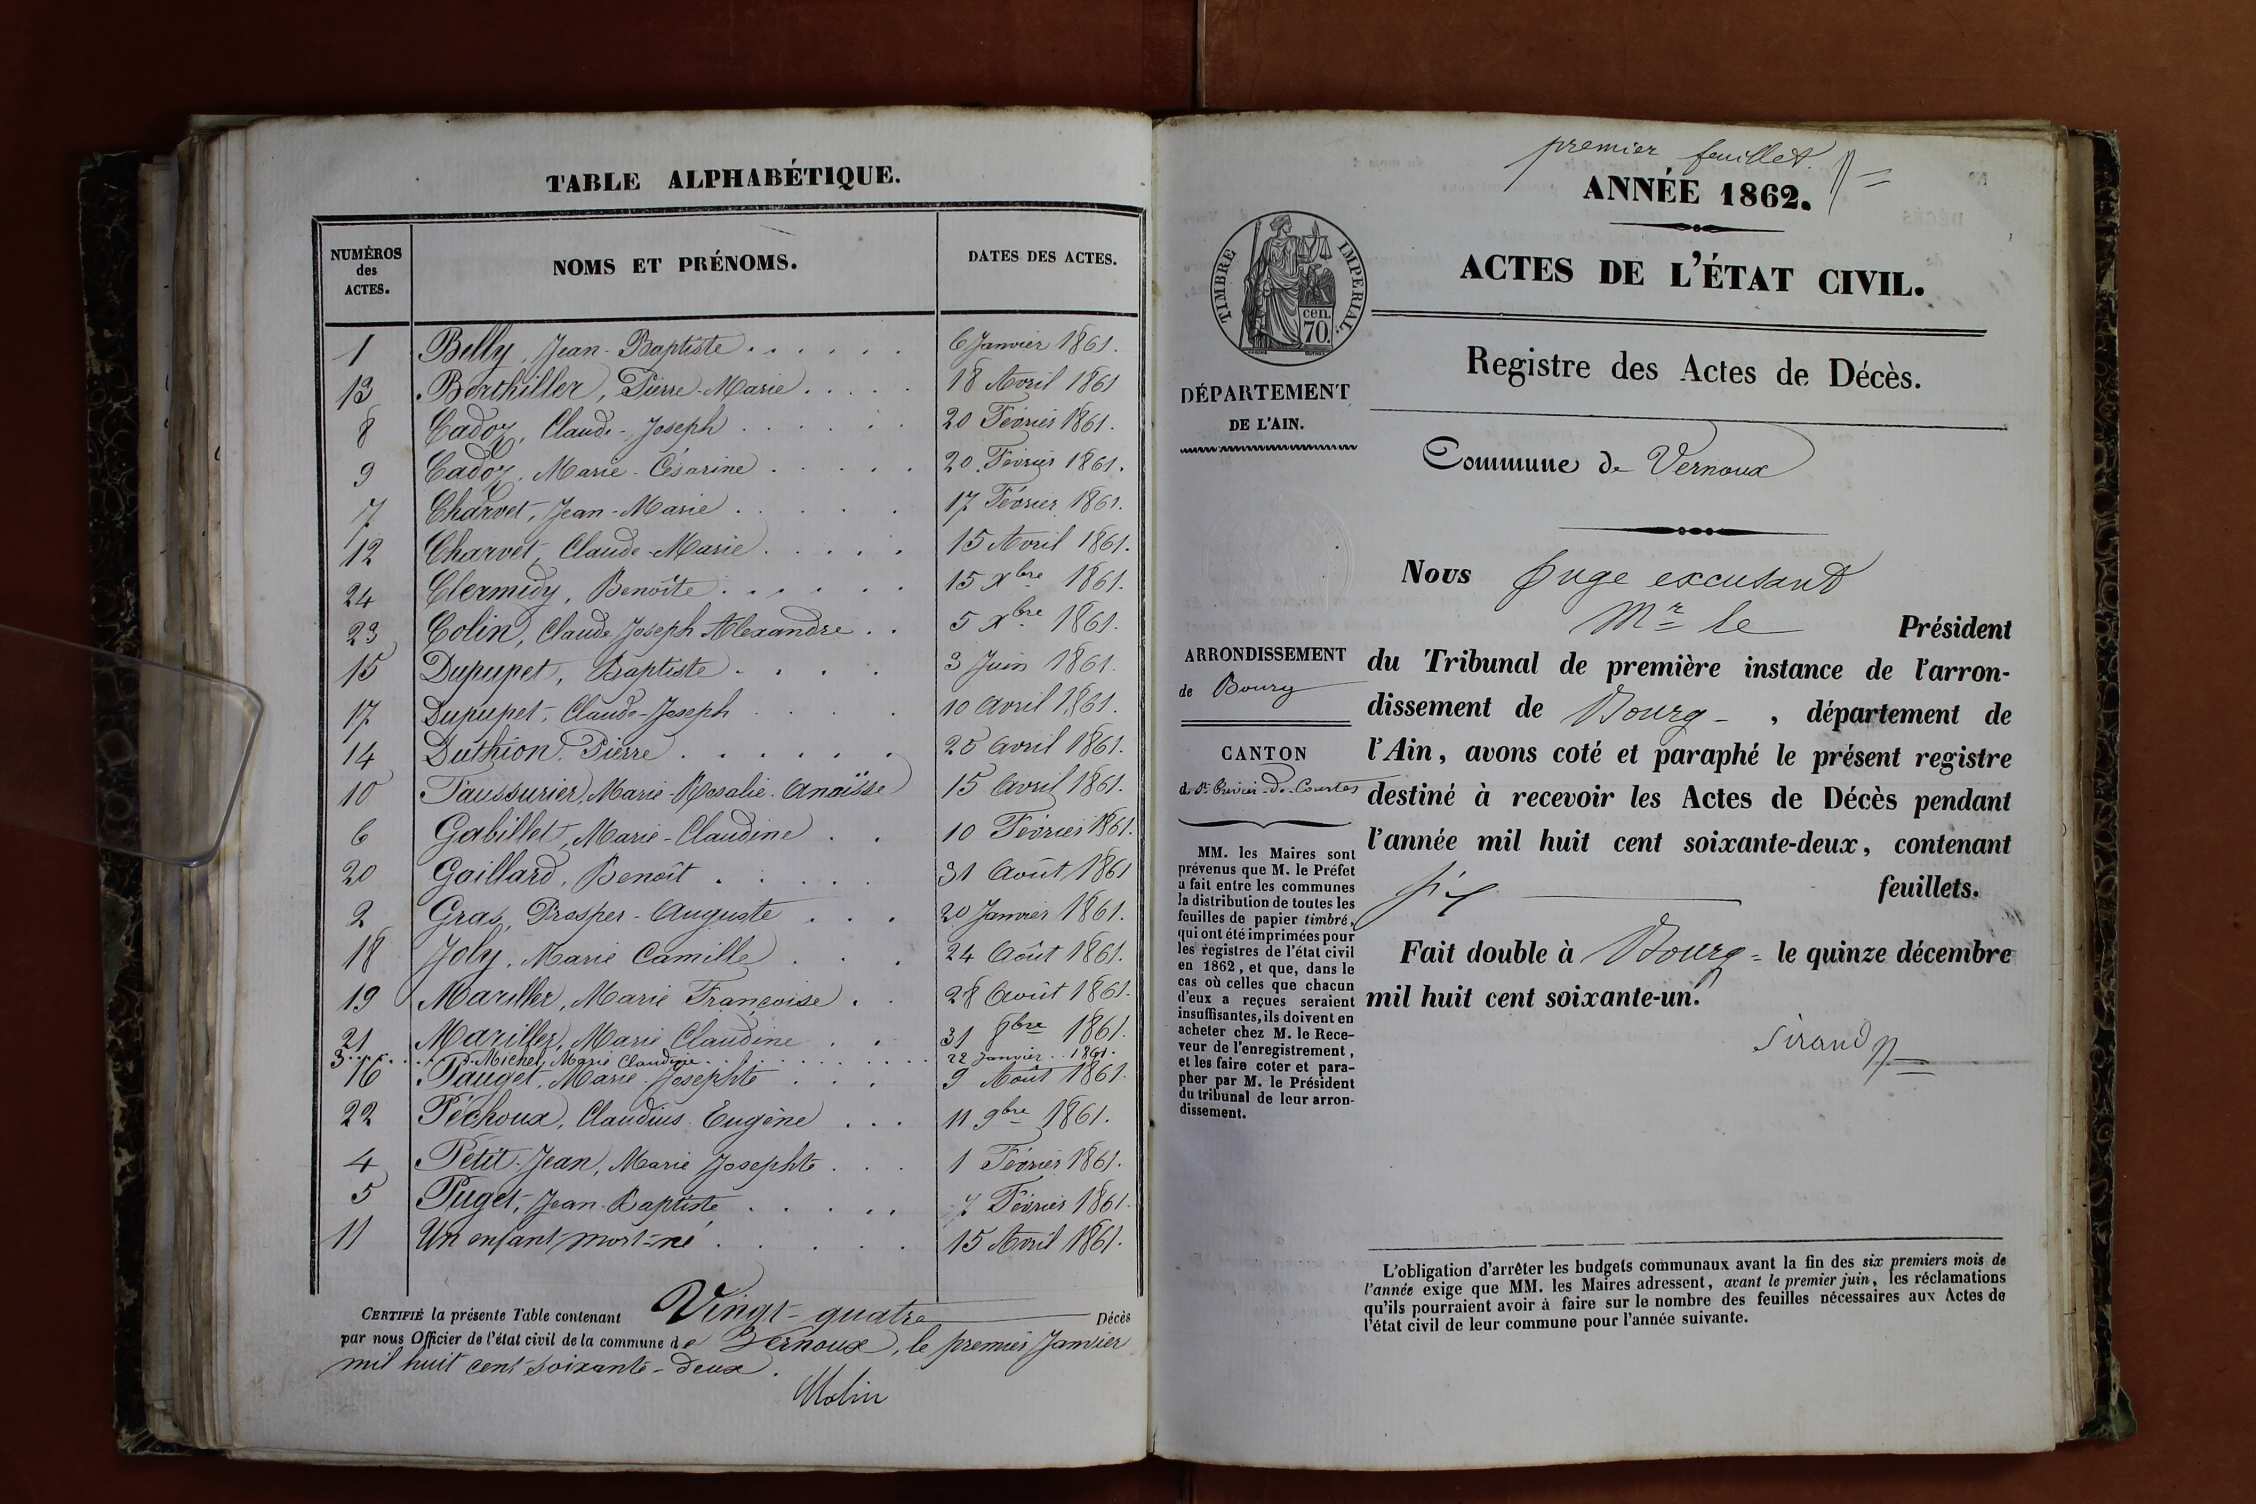 TABLE ALPHABÉTIQUE.
NUMÉROS des ACTES. NOMS ET PRÉNOMS. DATES DES ACTES.
1 Belly, Jean-Baptiste 6 Janvier 1861.
13 Berthiller, Pierre-Marie 18 Avril 1861
8 Cadoz, Claude-Joseph 20 Février 1861.
9 Cadoz, Marie-Césarine 20 Février 1861.
7 Charvet, Jean-Marie 17 Février 1861.
12 Charvet, Claude-Marie 15 Avril 1861.
24 Clermidy, Benoîte 15 Xbre 1861.
23 Colin, Claude Joseph Alexandre 5 Xbre 1861.
15 Dupupet, Baptiste 3 Juin 1861.
17 Dupupet, Claude-Joseph 10 Avril 1861.
14 Duthion, Pierre 25 Avril 1861.
10 Faussurier, Marie-Rosalie-Anaïsse 15 Avril 1861.
6 Gabillet, Marie-Claudine 10 Février 1861.
20 Gaillard, Benoît 31 Août 1861
2 Gras, Prosper-Auguste 20 Janvier 1861.
18 Joly, Marie Camille 24 Août 1861.
19 Mariller, Marie Françoise 28 Août 1861.
21 Mariller, Marie Claudine 31 8bre 1861.
3 Michel, Marie Claudine 22 Janvier 1861.
16 Pauget, Marie-Josephte 9 Août 1861.
22 Péchoux, Claudius Eugène 11 9bre 1861.
4 Petit-Jean, Marie Josephte 1 Février 1861.
5 Puget, Jean-Baptiste 7 Février 1861.
11 Un enfant mort-né 15 Avril 1861.
CERTIFIÉ la présente Table contenant Vingt-quatre Décès
par nous Officier de l'état civil de la commune de Vernoux, le premier Janvier
mil huit cent soixante-deux.
Molin
premier feuillet.
ANNÉE 1862.
TIMBRE IMPERIAL.
cen.
70.
ACTES DE L'ÉTAT CIVIL.
Registre des Actes de Décès.
DÉPARTEMENT
DE L'AIN.
Commune de Vernoux
ARRONDISSEMENT
de Bourg
CANTON
de St Trivier-de-Courtes
MM. les Maires sont
prévenus que M. le Préfet
a fait entre les communes
la distribution de toutes les
feuilles de papier timbré,
qui ont été imprimées pour
les registres de l'état civil
en 1862, et que, dans le
cas où celles que chacun
d'eux a reçues seraient
insuffisantes, ils doivent en
acheter chez M. le Rece-
veur de l'enregistrement,
et les faire coter et para-
pher par M. le Président
du tribunal de leur arron-
dissement.
Nous Juge excusant
Mr le Président
du Tribunal de première instance de l'arron-
dissement de Bourg, département de
l'Ain, avons coté et paraphé le présent registre
destiné à recevoir les Actes de Décès pendant
l'année mil huit cent soixante-deux, contenant
six feuillets.
Fait double à Bourg le quinze décembre
mil huit cent soixante-un.
Sirand
L'obligation d'arrêter les budgets communaux avant la fin des six premiers mois de
l'année exige que MM. les Maires adressent, avant le premier juin, les réclamations
qu'ils pourraient avoir à faire sur le nombre des feuilles nécessaires aux Actes de
l'état civil de leur commune pour l'année suivante.